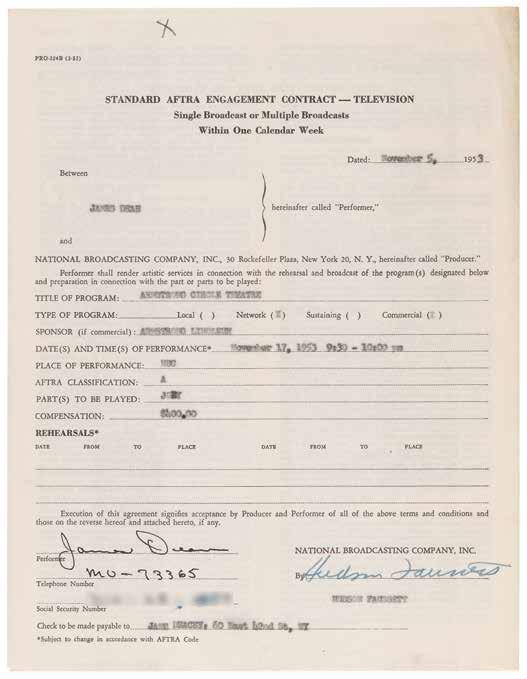 PRO-324B (2-52)
STANDARD AFTRA ENGAGEMENT CONTRACT — TELEVISION
Single Broadcast or Multiple Broadcasts
Within One Calendar Week
Dated: November 5, 1953
Between
JAMES DEAN
hereinafter called "Performer,"
and
NATIONAL BROADCASTING COMPANY, INC., 30 Rockefeller Plaza, New York 20, N. Y., hereinafter called "Producer."
Performer shall render artistic services in connection with the rehearsal and broadcast of the program(s) designated below
and preparation in connection with the part or parts to be played:
TITLE OF PROGRAM: ARMSTRONG CIRCLE THEATRE
TYPE OF PROGRAM: Local ( ) Network (X) Sustaining ( ) Commercial (X)
SPONSOR (if commercial): ARMSTRONG LINOLEUM
DATE(S) AND TIME(S) OF PERFORMANCE* November 17, 1953 9:30 - 10:00 pm
PLACE OF PERFORMANCE: NBC
AFTRA CLASSIFICATION: A
PART(S) TO BE PLAYED: JOEY
COMPENSATION: $400.00
REHEARSALS*
DATE FROM TO PLACE DATE FROM TO PLACE
Execution of this agreement signifies acceptance by Producer and Performer of all of the above terms and conditions and
those on the reverse hereof and attached hereto, if any.
James Dean
Performer
NATIONAL BROADCASTING COMPANY, INC.
MU-73365
Telephone Number
By Hudson Faussett
Social Security Number
HUDSON FAUSSETT
Check to be made payable to JANE DEACY: 60 East 42nd St, NY
*Subject to change in accordance with AFTRA Code